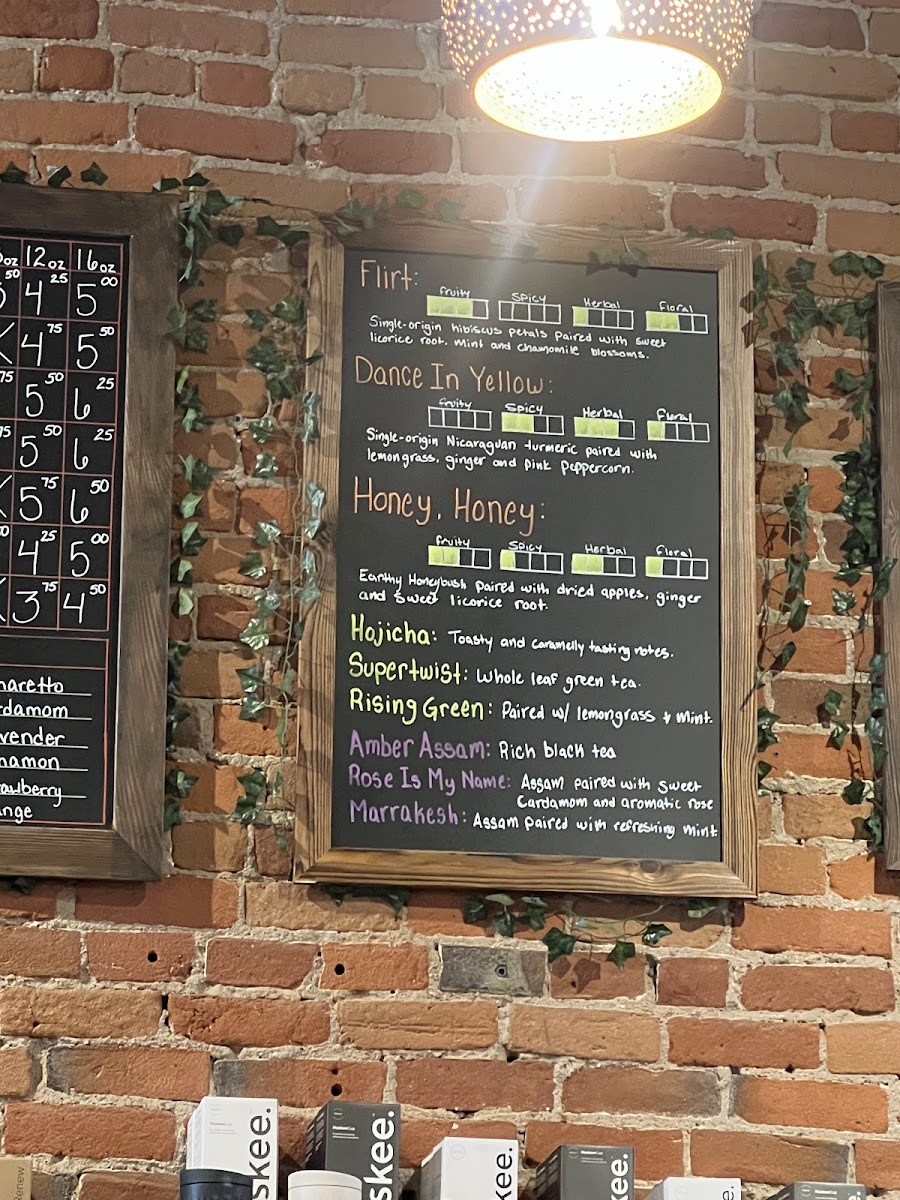 oz 12oz 16oz
50 4 25 5 00
4 75 5 50
75 5 50 6 25
75 5 50 6 25
5 75 6 50
4 25 5 00
3 75 4 50
Flirt:
fruity Spicy Herbal Floral
Single-origin hibiscus petals Paired with sweet
licorice root. Mint and chamomile blossoms.
Dance In Yellow:
fruity Spicy Herbal Floral
Single-origin Nicaraguan turmeric paired with
lemongrass, ginger and pink peppercorn.
Honey, Honey:
fruity Spicy Herbal floral
Earthy Honeybush paired with dried apples, ginger
and sweet licorice root.
Hojicha: Toasty and caramelly tasting notes.
Supertwist: Whole leaf green tea.
Rising Green: Paired w/ lemongrass & mint.
Amber Assam: Rich black tea
Rose Is My Name: Assam paired with sweet
Cardamom and aromatic rose
Marrakesh: Assam paired with refreshing mint
skee.
skee.
kee.
kee.